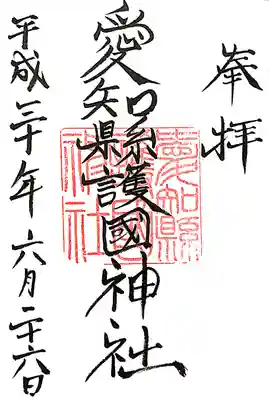 奉拝
愛知縣護國神社
平成三十年六月二十六日
愛知縣
護國
神社